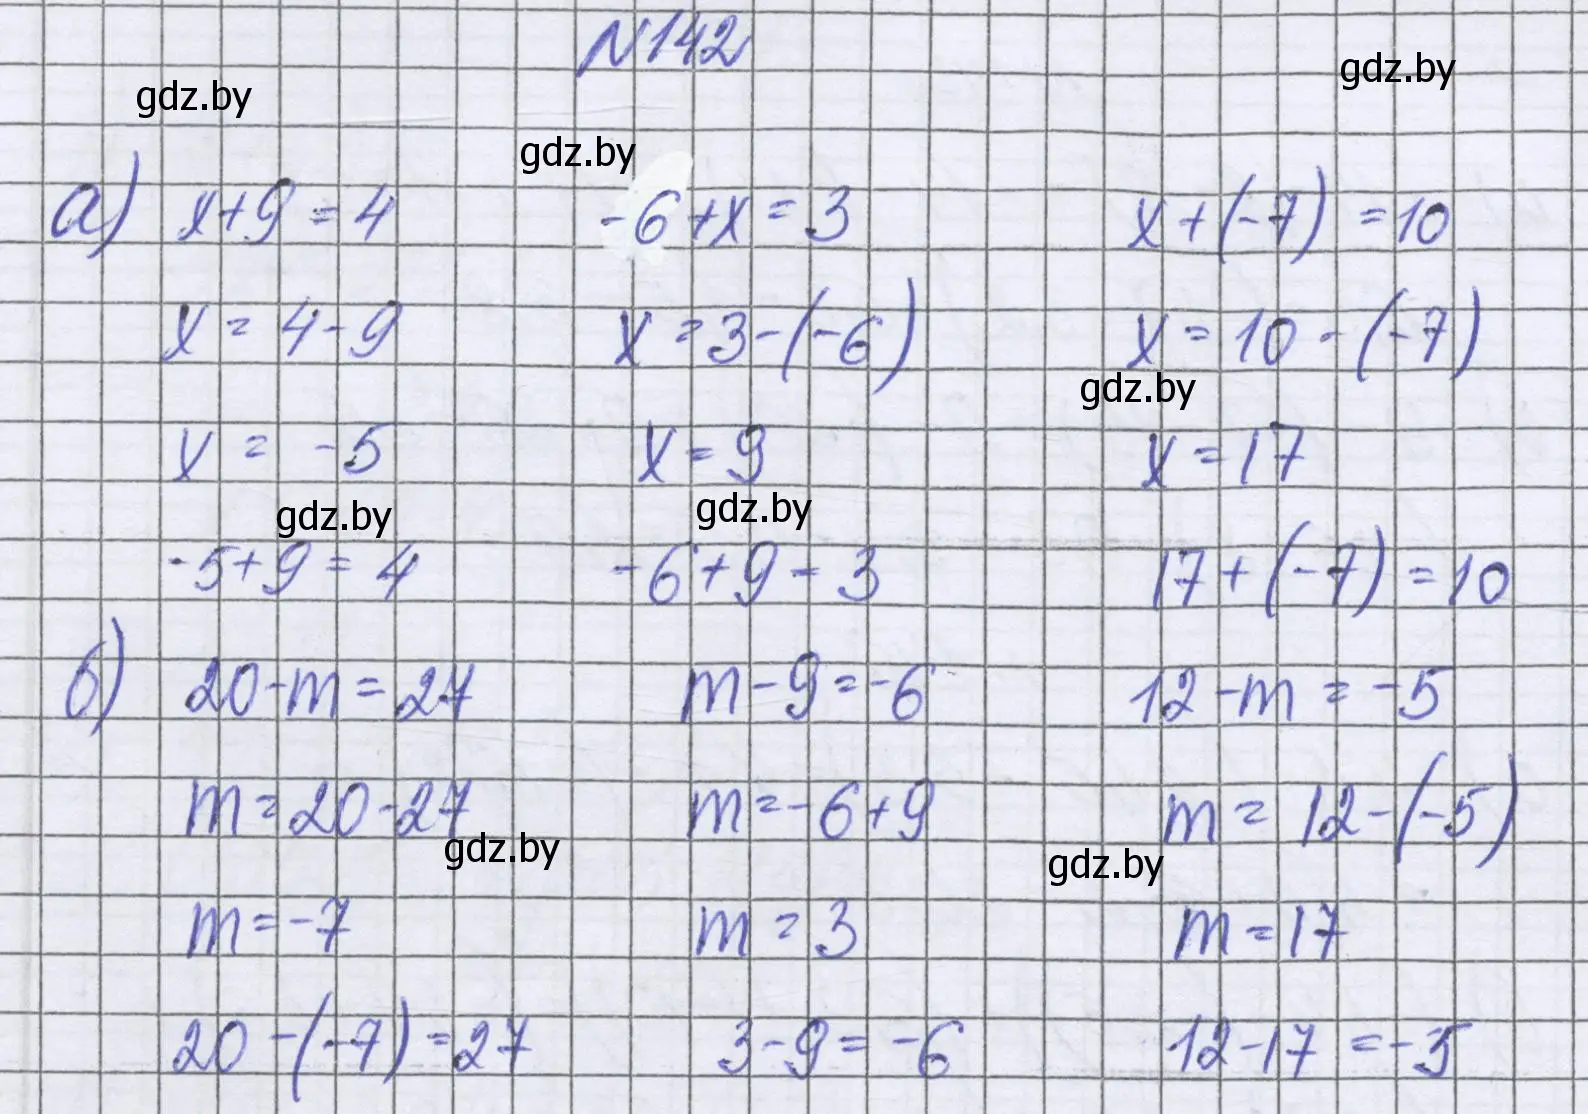 N142
gdz.by gdz.by
gdz.by
а) x+9=4 -6+x=3 x+(-7)=10
x=4-9 x=3-(-6) x=10-(-7)
gdz.by
x=-5 x=9 x=17
gdz.by gdz.by
-5+9=4 -6+9=3 17+(-7)=10
б) 20-m=27 m-9=-6 12-m=-5
m=20-27 m=-6+9 m=12-(-5)
gdz.by gdz.by
m=-7 m=3 m=17
20-(-7)=27 3-9=-6 12-17=-5